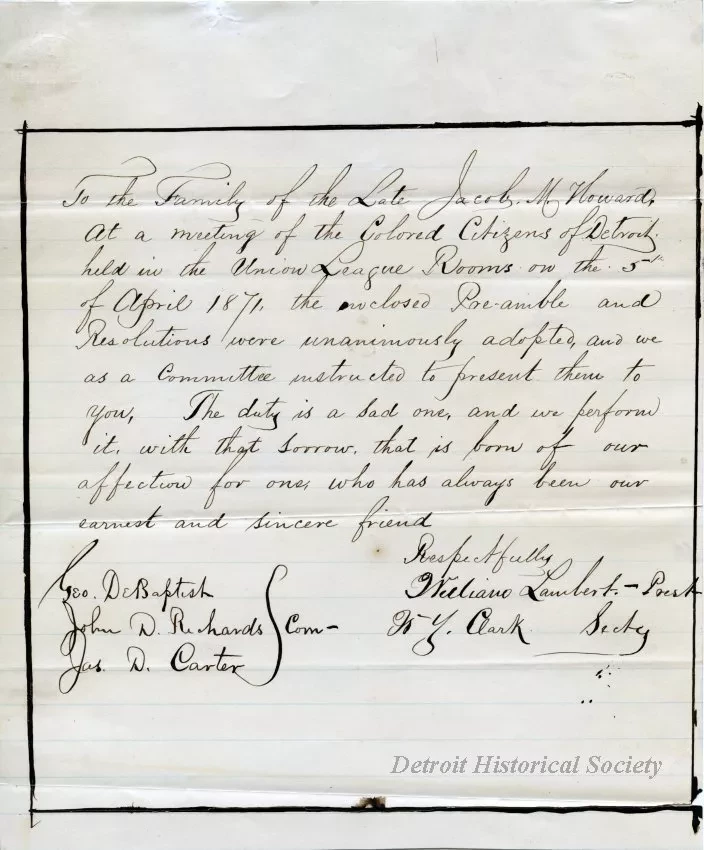 To the Family of the Late Jacob. M Howard,
At a meeting of the Colored Citizens of Detroit.
held in the Union League Rooms on the 5"
of April 1871, the enclosed Pre-amble and
Resolutions were unanimously adopted, and we
as a Committee instructed to present them to
you, The duty is a sad one, and we perform
it. with that sorrow. that is born of our
affection for one, who has always been our
earnest and sincere friend
Respectfully
Geo. DeBaptist
William Lambert. - Prest
John D. Richards } Com-
W Y. Clark Secty
Jas. D. Carter
Detroit Historical Society